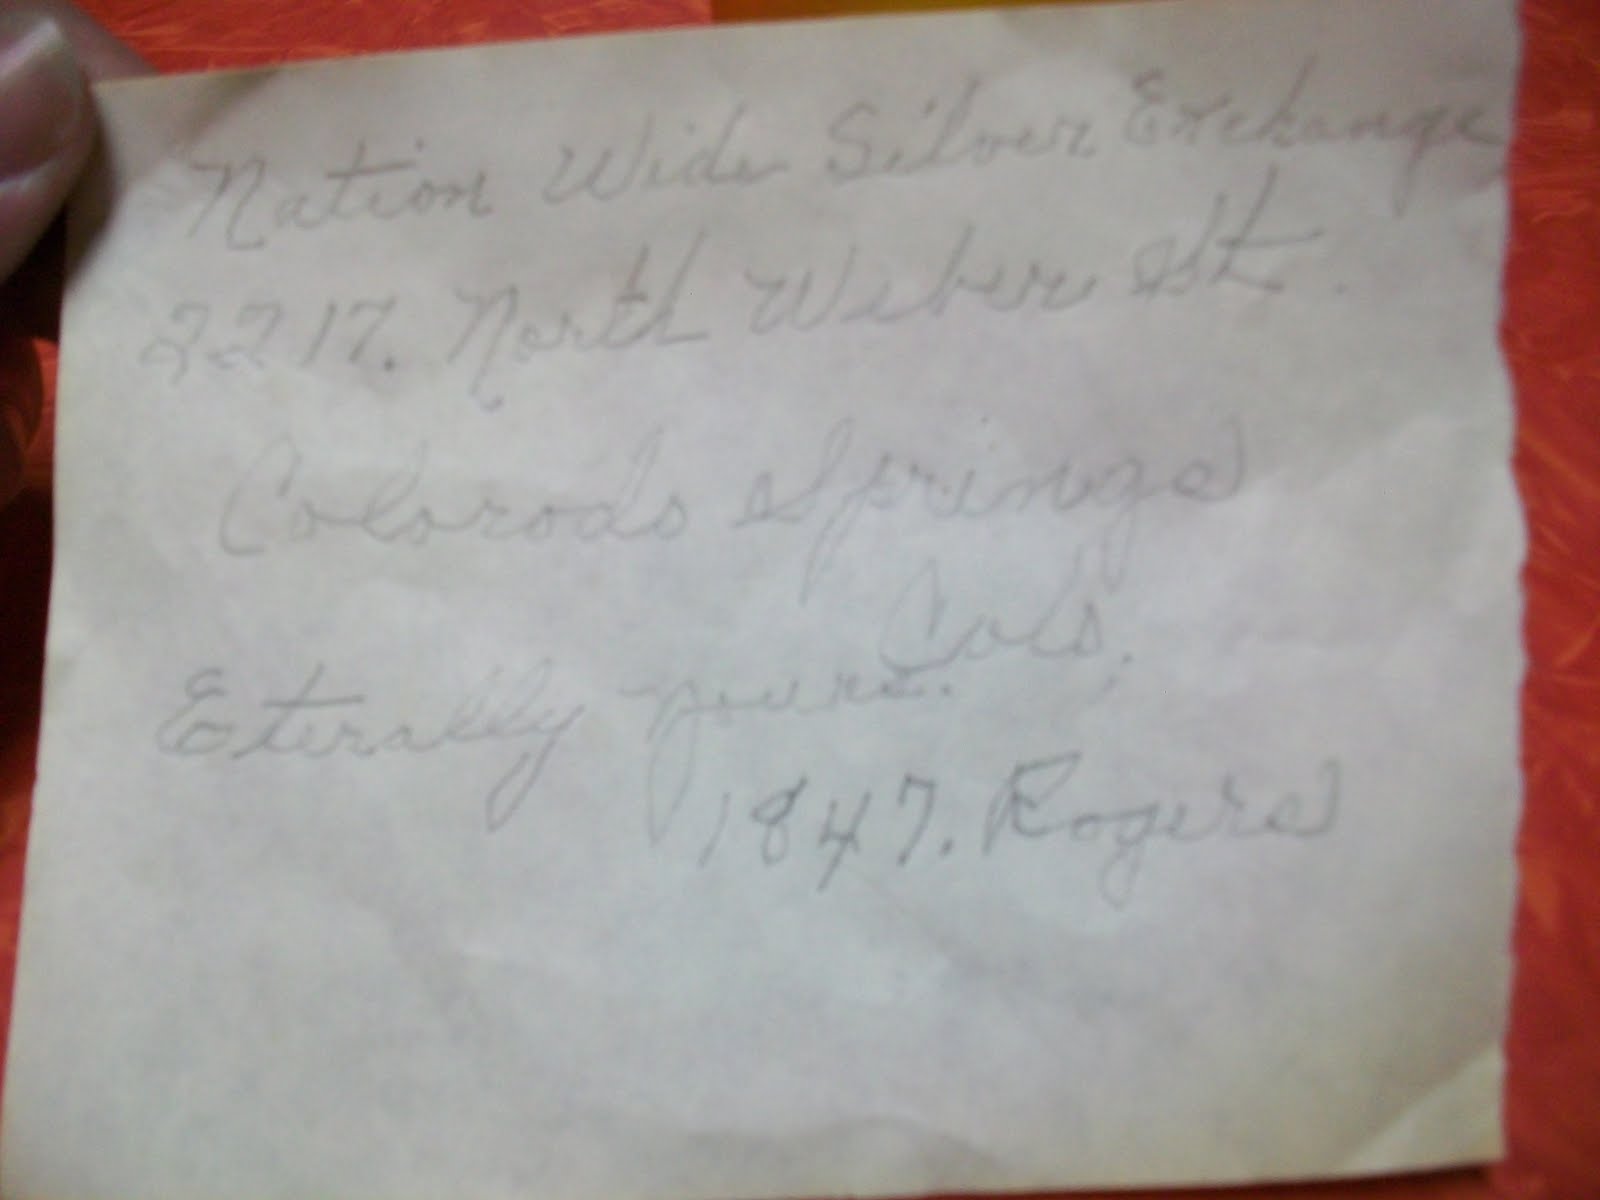 Nation Wide Silver Exchange
2217. North Weber St.
Colorodo Springs
Colo.
Eterally yours.
1847. Rogers